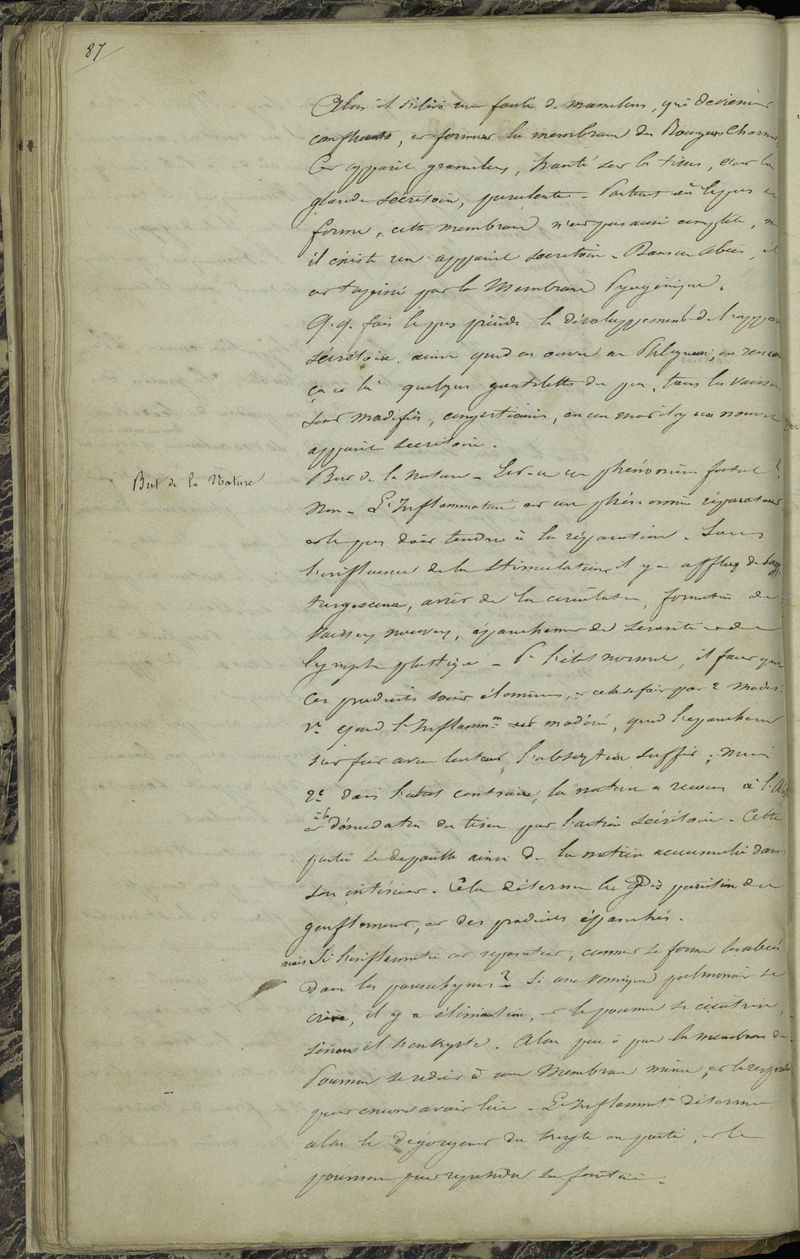 87
Alors il s'élève une foule de mamelons, qui deviennent
confluents, et forment la membrane des Bourgeons Charnus
Cet appareil granuleux, sur les tissus, c'est la
glande sécrétoire, purulente - Partout où le pus se
forme, cette membrane n'est pas aussi complète, mais
il existe un appareil secretoire - Dans un Abcès, il
est par la Membrane Pyogénique.
q.q. fois le pus précède le développement de l'appareil
sécrétoire. ainsi quand on ouvre un Phlegmon, on rencontre
çà et là quelques gouttelettes de pus, tous les vaisseaux
sont modifiés, congestionnés, en un mot il y a un nouvel
appareil secretoire.
But de la Nature
But de la nature - Est-ce un phénomène fatal ?
Non - L'Inflammation est un phénomène réparateur
et le pus doit tendre à la réparation - Sous
l'influence de la Stimulation il y a afflux de Sang
turgescence, arrêt de la circulation, formation de
Vaisseaux nouveaux, épanchement de serosité et de
lymphe plastique - à l'état normal, il faut que
ces produits soient éliminés, et cela se fait par 2 modes:
1º quand l'Inflamm.on est modérée, quand l'épanchement
s'est fait avec lenteur, l'absorption suffit; mais
2º dans l'état contraire, la nature a recours à
et à la dénudation du tissu par l'action sécrétoire - Cette
partie se dépouille ainsi de la matière accumulée dans
son intérieur. Cela détermine la disparition du
gonflement, et des produits épanchés.
mais Si l'inflammation est réparatrice, comment se forment les abcès
dans les parenchymes? Si une Vomique pulmonaire se
crève, il y a élimination, et le poumon se cicatrise,
sinon il s'enkyste. Alors peu à peu la membrane du
Poumon se réduit à une Membrane mince, et la respiration
peut encore avoir lieu - L'Inflammat.n détermine
alors le dégorgement du kyste en partie, et le
poumon peut reprendre sa fonction.